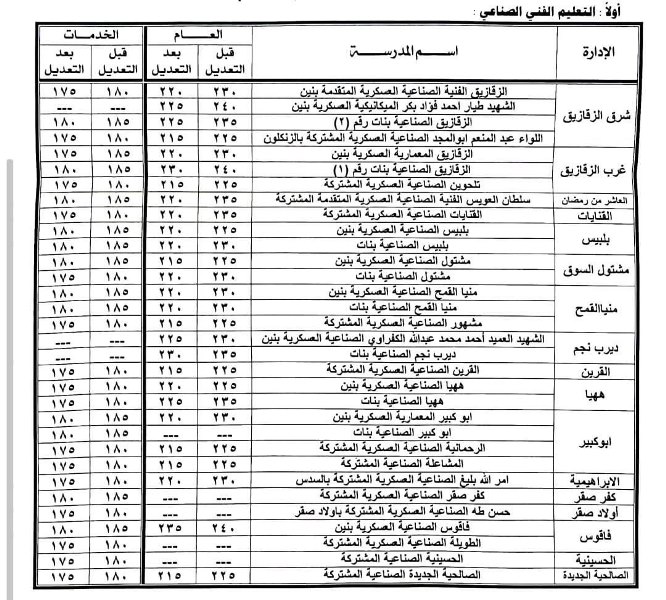 أولاً : التعليم الفني الصناعي :
الإدارة اسم المدرسة العــــام الخدمات
قبل التعديل بعد التعديل قبل التعديل بعد التعديل
شرق الزقازيق الزقازيق الفنية الصناعية العسكرية المتقدمة بنين ٢٣٠ ٢٢٠ ١٨٠ ١٧٥
الشهيد طيار احمد فؤاد بكر الميكانيكية العسكرية بنين ٢٤٠ ٢٢٥ --- ---
الزقازيق الصناعية بنات رقم (٢) ٢٣٥ ٢٢٥ ١٨٥ ١٨٠
اللواء عبد المنعم ابوالمجد الصناعية العسكرية المشتركة بالزنكلون ٢٢٥ ٢١٥ ١٨٥ ١٧٥
غرب الزقازيق الزقازيق المعمارية العسكرية بنين ٢٣٠ ٢٢٠ ١٨٥ ١٧٥
الزقازيق الصناعية بنات رقم (١) ٢٤٠ ٢٣٠ ١٨٥ ١٨٠
تلحوين الصناعية العسكرية المشتركة ٢٢٥ ٢١٥ ١٨٠ ١٧٥
العاشر من رمضان سلطان العويس الفنية الصناعية العسكرية المتقدمة المشتركة ٢٣٥ ٢٢٠ ١٨٥ ١٨٠
القنايات القنايات الصناعية العسكرية المشتركة ٢٣٥ ٢٢٥ ١٨٠ ١٧٥
بلبيس بلبيس الصناعية العسكرية بنين ٢٣٥ ٢٢٥ ١٨٥ ١٨٠
بلبيس الصناعية بنات ٢٣٠ ٢٢٠ ١٨٥ ١٨٠
مشتول السوق مشتول الصناعية العسكرية بنين ٢٢٥ ٢١٥ ١٨٥ ١٨٠
مشتول الصناعية بنات ٢٣٠ ٢٢٠ ١٨٠ ١٧٥
منياالقمح منيا القمح الصناعية العسكرية بنين ٢٣٠ ٢٢٠ ١٨٥ ١٨٠
منيا القمح الصناعية بنات ٢٣٠ ٢٢٠ ١٨٥ ١٨٠
مشهور الصناعية العسكرية المشتركة ٢٢٥ ٢١٥ ١٨٠ ١٧٥
ديرب نجم الشهيد العميد أحمد محمد عبدالله الكفراوي الصناعية العسكرية بنين ٢٣٠ ٢٢٥ --- ---
ديرب نجم الصناعية بنات ٢٣٥ ٢٣٠ --- ---
القرين القرين الصناعية العسكرية المشتركة ٢٢٥ ٢١٥ ١٨٠ ١٧٥
ههيا ههيا الصناعية العسكرية بنين ٢٢٥ ٢٢٠ ١٨٠ ١٧٥
ههيا الصناعية بنات ٢٣٥ ٢٢٥ ١٨٠ ١٧٥
ابوكبير ابو كبير المعمارية العسكرية بنين ٢٣٠ ٢٢٠ ١٨٥ ١٨٠
ابو كبير الصناعية بنات --- --- ١٨٥ ١٨٠
الرحمانية الصناعية العسكرية المشتركة ٢٢٥ ٢١٥ ١٨٠ ١٧٥
المشاعلة الصناعية المشتركة ٢٢٥ ٢١٥ ١٨٠ ١٧٥
الابراهيمية امر الله بليغ الصناعية العسكرية المشتركة بالسدس ٢٣٠ ٢٢٠ ١٨٠ ١٧٥
كفر صقر كفر صقر الصناعية العسكرية المشتركة --- --- ١٨٥ ١٨٠
أولاد صقر حسن طه الصناعية العسكرية المشتركة باولاد صقر --- --- ١٨٠ ١٧٥
فاقوس فاقوس الصناعية العسكرية بنين ٢٤٠ ٢٣٥ ١٨٥ ١٨٠
الطويلة الصناعية العسكرية المشتركة --- --- ١٨٠ ١٧٥
الحسينية الحسينية الصناعية العسكرية المشتركة --- --- ١٨٠ ١٧٥
الصالحية الجديدة الصالحية الجديدة الصناعية المشتركة ٢٢٥ ٢١٥ ١٨٠ ١٧٥